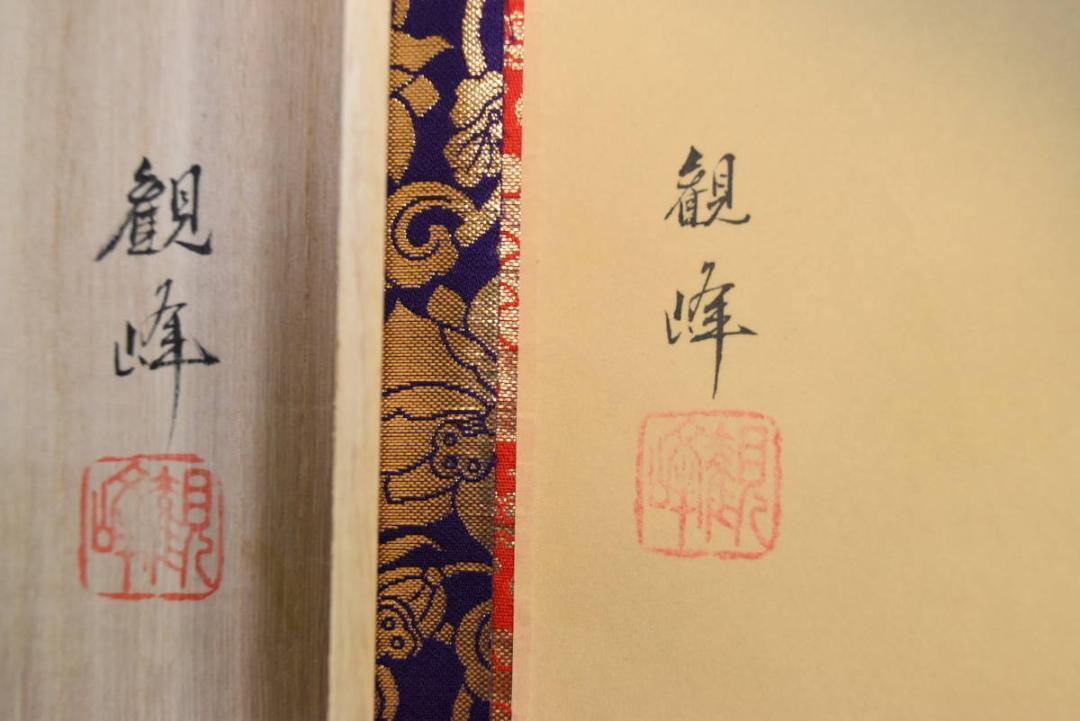 観峰
観峰
観峰
観峰